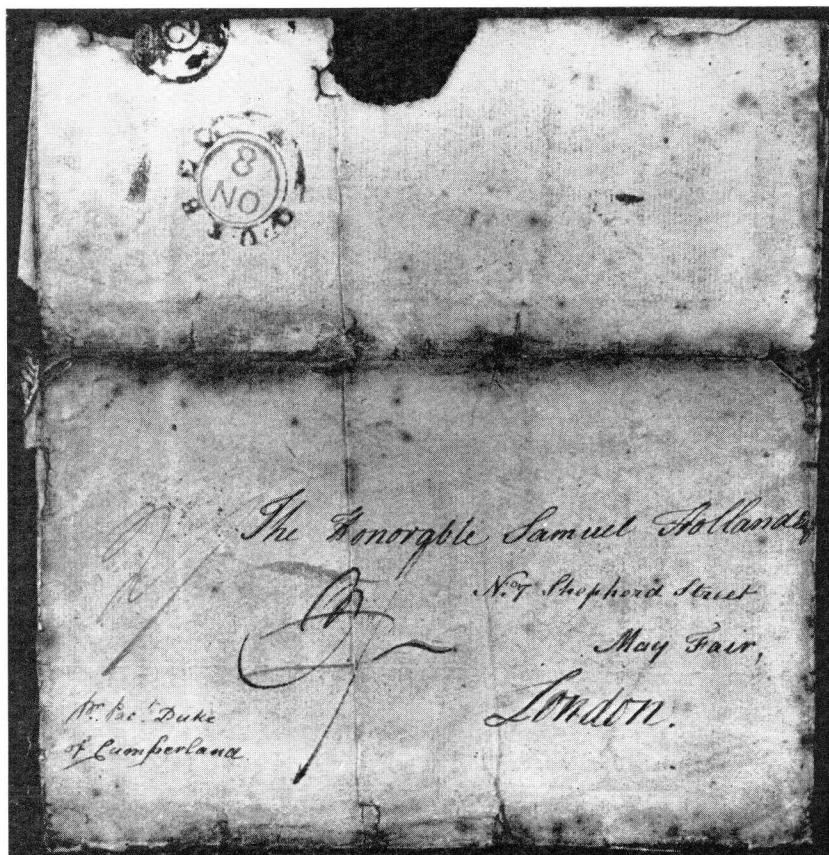 QUEBEC
8
NO
The Honorable Samuel Holland Esqr
No. 7 Shepherd Street
May Fair,
London.
Pr. Pact. Duke
of Cumberland